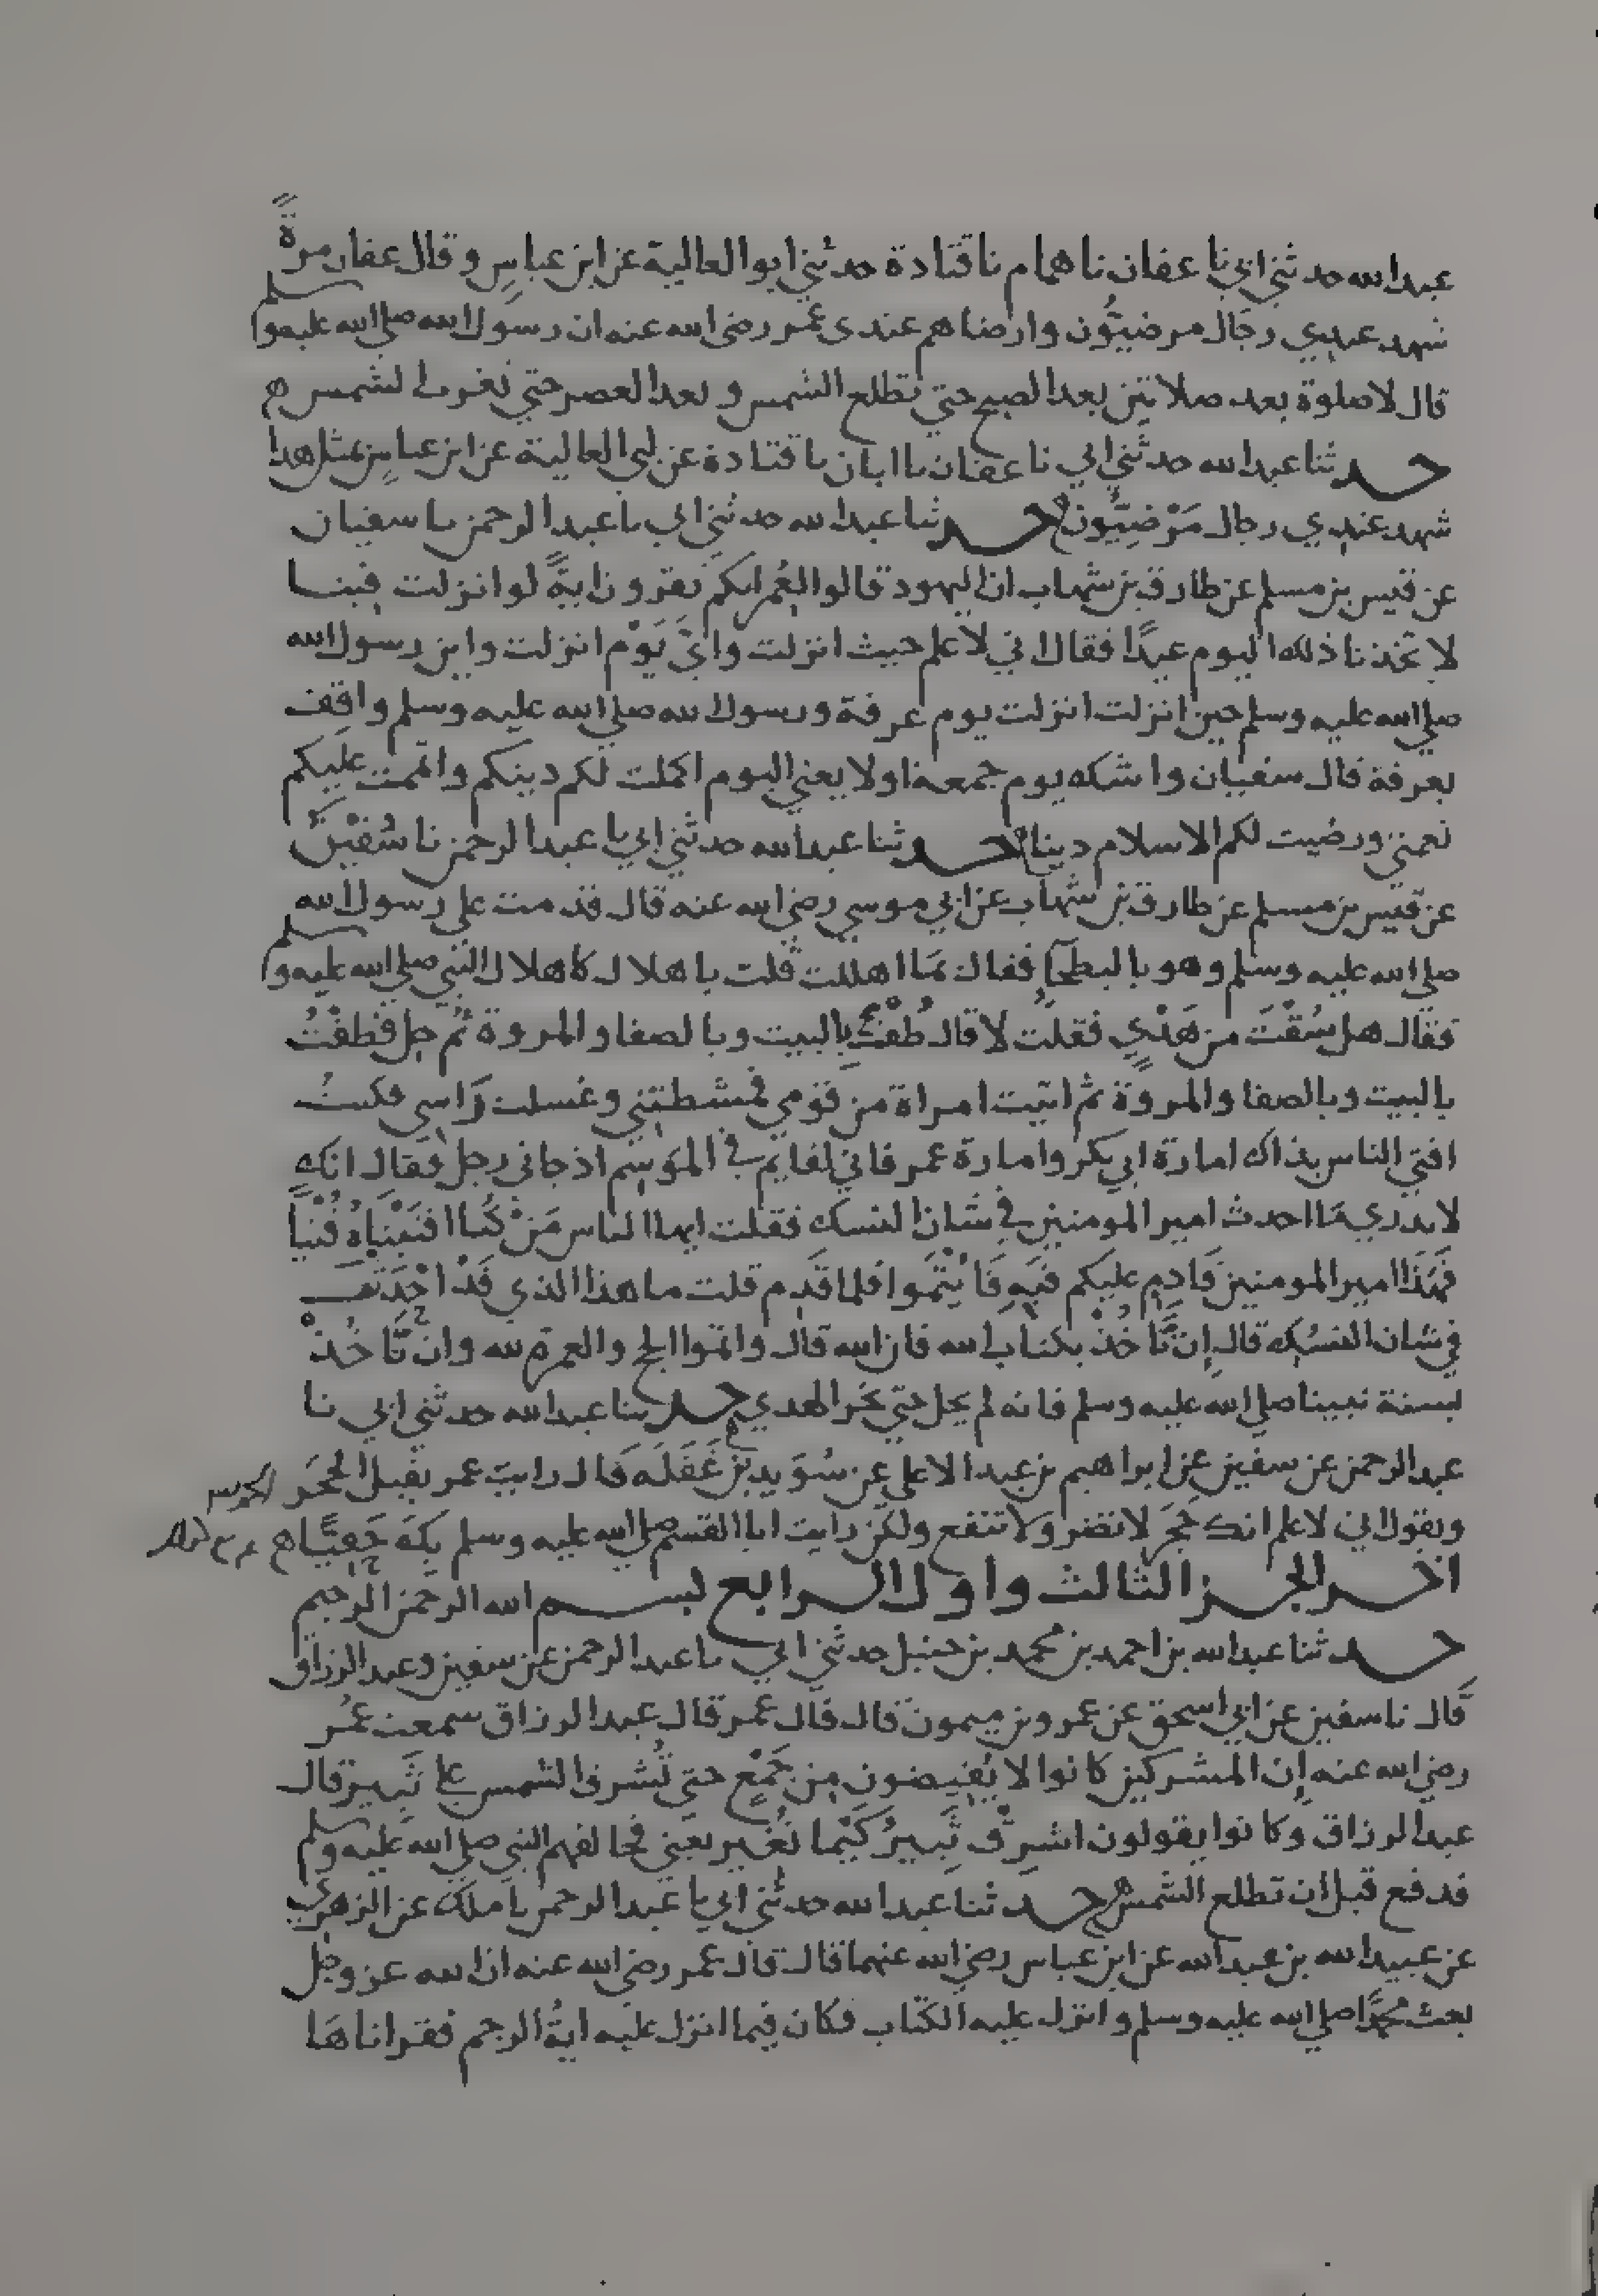 عبد الله حدثني ابي نا عفان نا همام نا قتادة حدثني ابو العالية عن ابن عباس وقال عفان مرةً
شهد عندي رجال مرضيُّون وارضاهم عندي عمر رضي الله عنه ان رسول الله صلى الله عليه وسلم
قال لا صلوة بعد صلاتين بعد الصبح حتى تطلع الشمس وبعد العصر حتي تغرب الشمس
حدثنا عبد الله حدثني ابي نا عفان نا ابان نا قتادة عن ابي العالية عن ابن عباس بمثل هذا
شهد عندي رجال مَرْضِيُّون حدثنا عبد الله حدثني ابي نا عبد الرحمن نا سفيان
عن قيس بن مسلم عن طارق بن شهاب ان اليهود قالوا لعُمر انكم تقرون ايةً لو انزلت فينا
لاتخذنا ذلك اليوم عيدًا فقال اني لاعلم حيث انزلت وايَّ يَوْم انزلت واين رسول الله
صلي الله عليه وسلم حين انزلت انزلت يوم عرفة ورسول الله صلي الله عليه وسلم واقف
بعرفة قال سفيان واشك يوم جمعة او لا يعني اليوم اكملت لكم دينكم واتممت عليكم
نعمتي ورضيت لكم الاسلام دينا حدثنا عبد الله حدثني ابي نا عبد الرحمن نا سُفْيٰن
عن قيس بن مسلم عن طارق بن شهاب عن ابي موسي رضي الله عنه قال قدمت علي رسول الله
صلي الله عليه وسلم وهو بالبطحا فقال بمَا اهللت قلت باهلال كاهلال النبي صلي الله عليه وسلم
فقال هل سُقْتَ من هَدْيٍ فقلت لا قال طُفْ بِالبيت وبالصفا والمروة ثُمَّ حِل فطفْتُ
بالبيت وبالصفا والمروة ثم اتيت امراة من قومي فمشطتني وغسلت رَاسي فكنتُ
افتي الناس بذاك امارة ابي بكر وامارة عمر فاني لقايم في الموسِم اذ جاني رجل فقال انك
لا تدري مَا احدث امير المومنين في شان النسك فقلت ايها الناس مَنْ كُنا افتَيْنَاهُ فُتْيَا
فهَذَا امير المومنين قَادِم عليكم فَبِهِ فَأْتَمُّوا فلما قَدِم قلت ما هذا الذي قَدْ احْدَثْتَ
في شان النسُك قال إن نَّاخُذْ بكتاب الله فان الله قال واتموا الحج والعمرة لله وان نَّاخُذْ
بسنة نبينا صلي الله عليه وسلم فانه لم يحل حتي نحر الهدي حدثنا عبد الله حدثني ابي نا
عبد الرحمن عن سفين عن ابراهيم بن عبد الاعلي عن سُوَيد بن غَفَلَه قَال رايت عمر يقبل الحَجَر
ويقول اني لاعلم انك حَجَر لا تضر ولا تنفع ولكن رايت ابا القسم صلي الله عليه وسلم بِكَ حَفِيًّا
اخر الجز الثالث واول الرابع بسم الله الرحمن الرحيم
حدثنا عبد الله بن احمد بن محمد بن حنبل حدثني ابي نا عبد الرحمن عن سفين وعبد الرزاق
قَال نا سفين عن ابي اسحق عن عمرو بن ميمون قال قال عمر قال عبد الرزاق سمعت عمُر
رضي الله عنه إن المشركين كانوا لا يُفيضون مِن جَمْعٍ حتي تُشرق الشمس على ثَبِير قال
عبد الرزاق وكانوا يقولون اشرِقْ ثَبِيرُ كَيْما نُغير يعني فخالفهم النبي صلي الله عليه وسلم
فدفع قبل ان تطلع الشمس حدثنا عبد الله حدثني ابي نا عبد الرحمن نا ملك عن الزهري
عن عبيد الله بن عبد الله عن ابن عباس رضي الله عنهما قال قال عمر رضي الله عنه ان الله عز وجل
بعث محمدًا صلي الله عليه وسلم وانزل عليه الكتاب فكان فيما انزل عليه ايةُ الرجم فقراناهَا